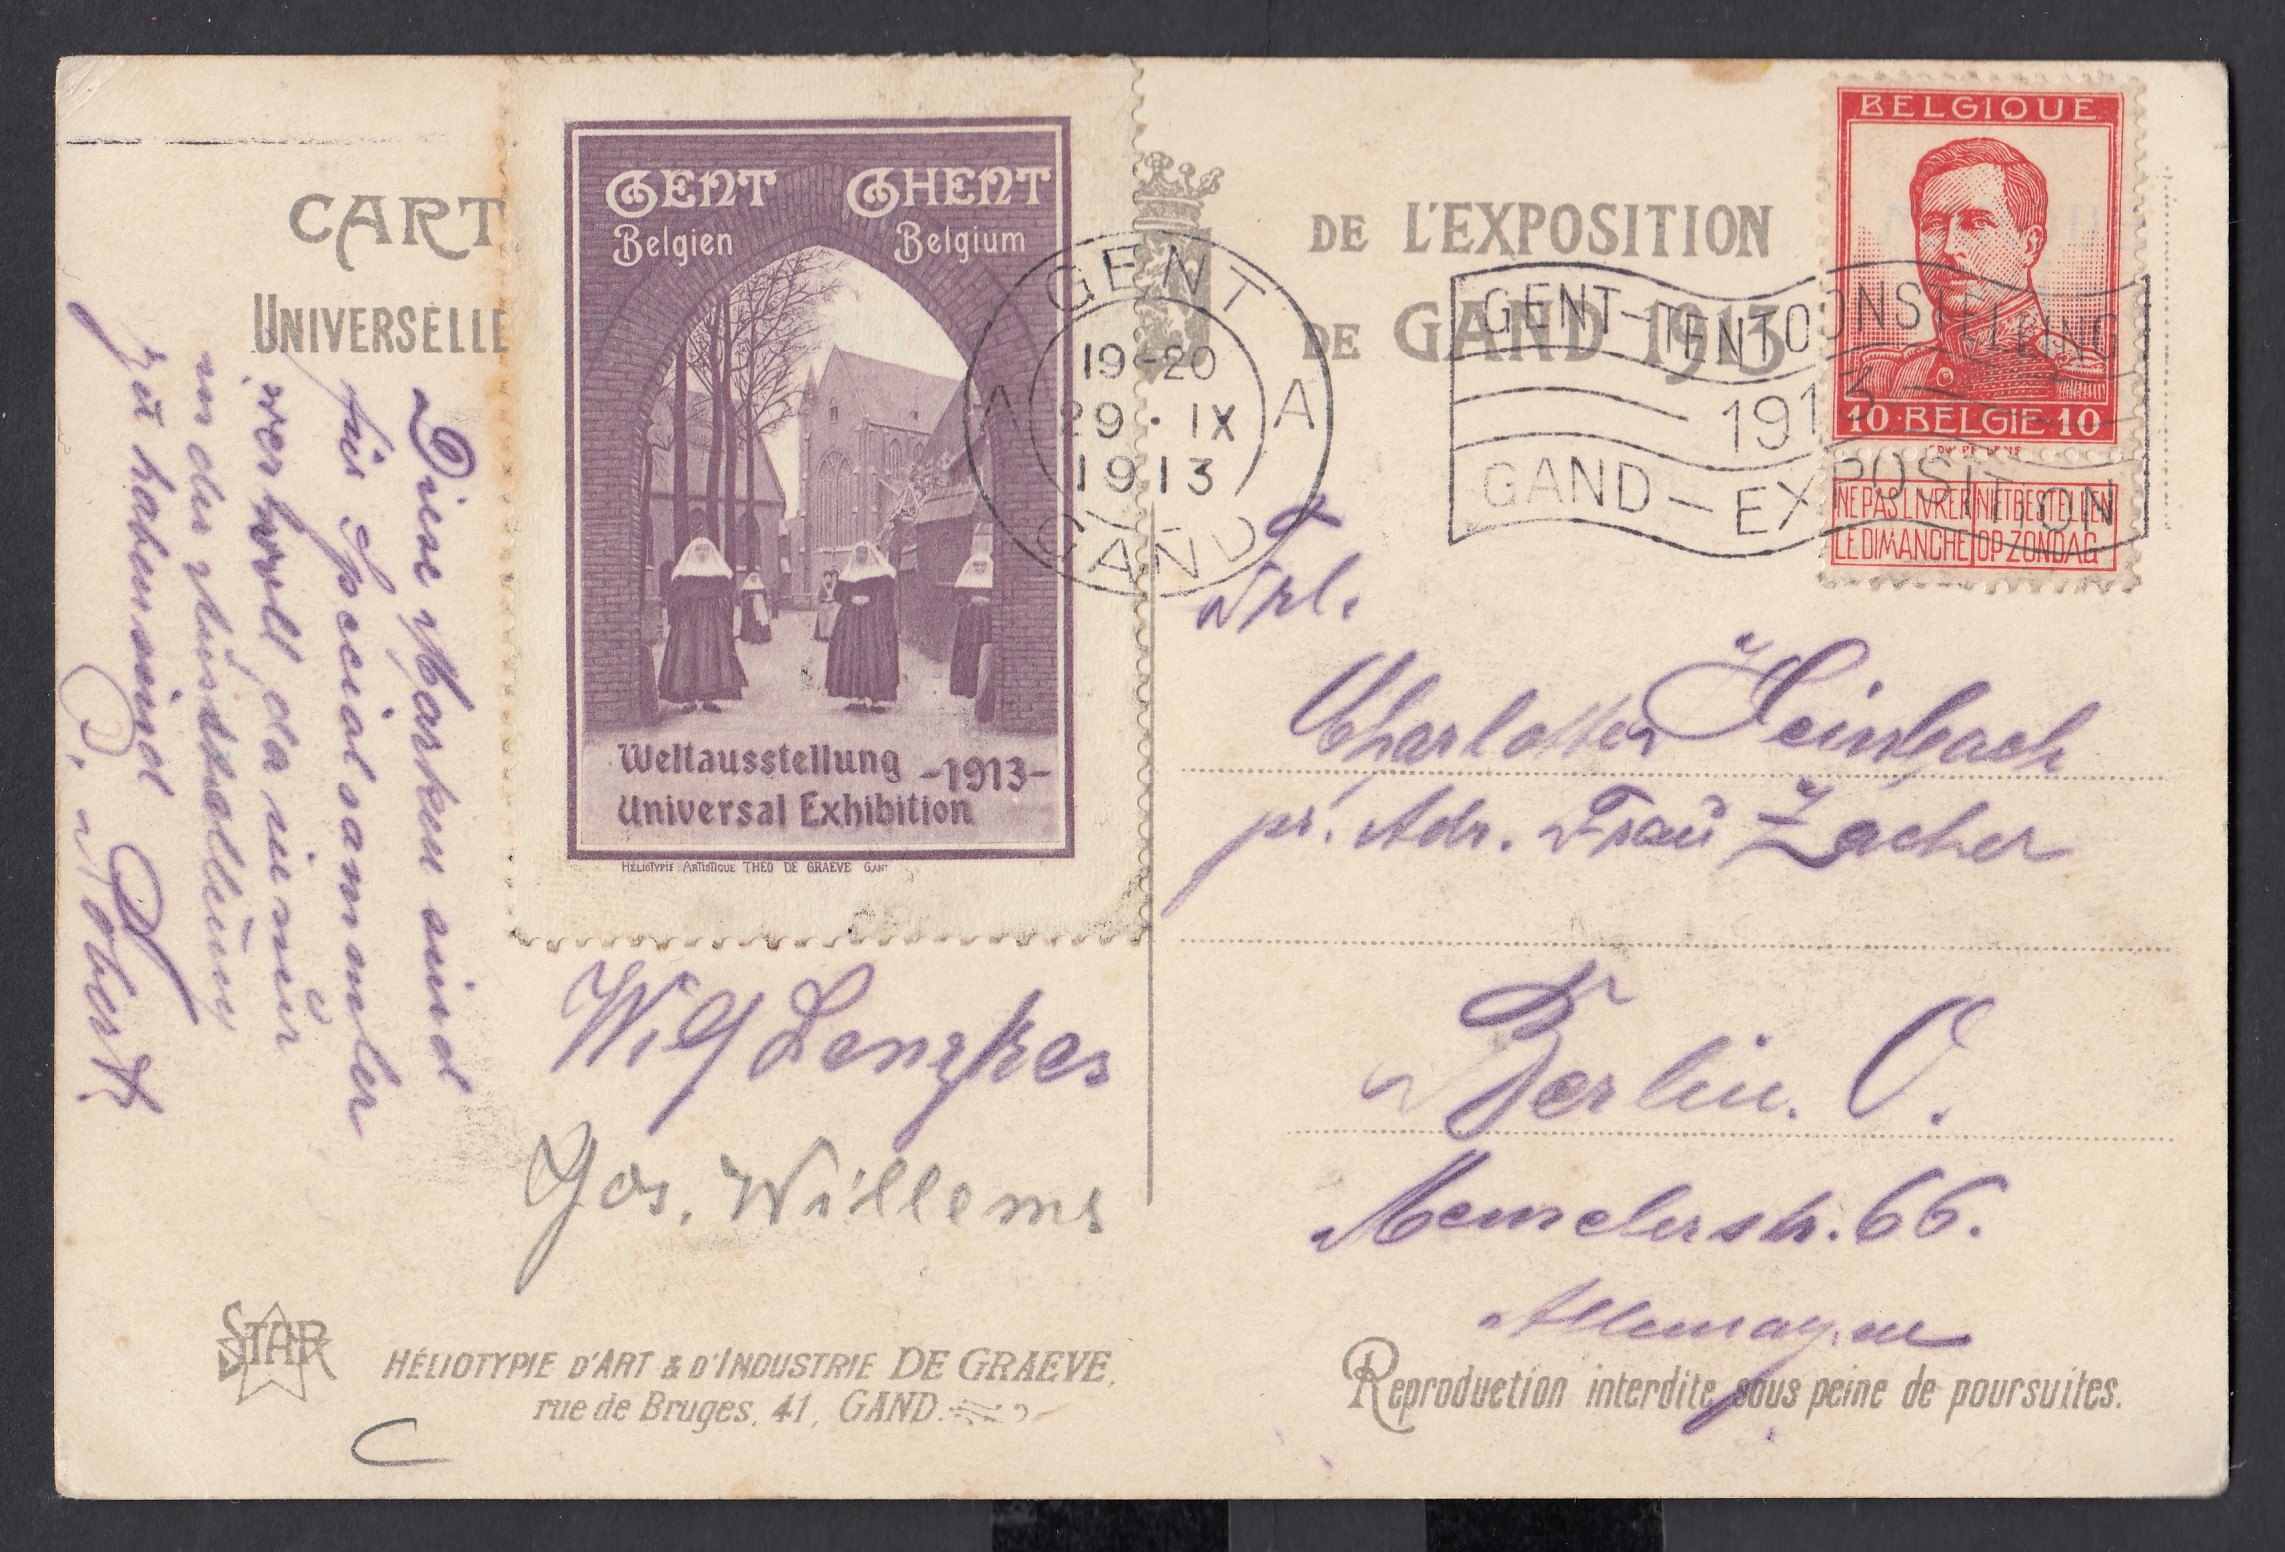 CART
UNIVERSELLE
DE L'EXPOSITION
DE GAND 1913
GENT GHENT
Belgien Belgium
Weltausstellung
-1913-
Universal Exhibition
HÉLIOTYPIE ARTISTIQUE THEO DE GRAEVE GANT
GENT
19-20
A 29·IX A
1913
GAND
GENT-TENTOONSTELLING
1913
GAND-EXPOSITION
BELGIQUE
10·BELGIE·10
NE PAS LIVRER NIET BESTELLEN
LE DIMANCHE OP ZONDAG
Diese Marken sind
für Specialsammler
wertvoll da sie nur
in der Ausstellung
zu haben sind
Robert
Wilf
Jos. Willems
Frl.
Charlotte Heimbach
pr. Adr. Frau Zacher
Berlin. O.
Memelerstr. 66.
Allemagne
STAR
HÉLIOTYPIE D'ART & D'INDUSTRIE DE GRAEVE,
rue de Bruges, 41, GAND.
Reproduction interdite sous peine de poursuites.
C